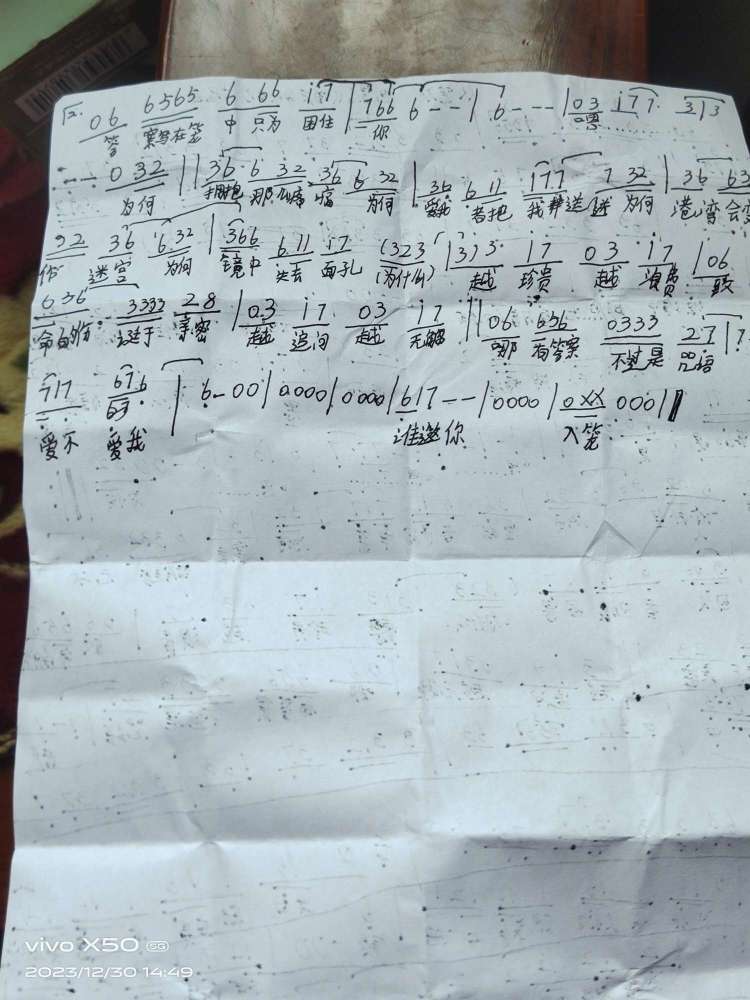 12. 06 6565 6 66 i7 | 766 6 - - | 6 - - - | 03 i77 313
答 案写在笼 中 只为 困住 你
- - 0 32 || 36 6 32 36 6 32 | 36 6 11 177 7 32 | 36 63
为何 拥抱 那么痛 为何 爱我 若把 我葬送 为何 港湾会
92 36 6 32 | 366 6 11 i7 (323 | 313 17 03 i7 | 06
作 迷宫 为何 镜中 失去 面孔 (为什么) 越 珍贵 越 浪费 致
636 3333 28 | 03 i7 03 i7 || 06 636 0333 27 | 7
命的 过于 亲密 越 追问 越 无解 哪 有答案 不过是 咒语
717 676 | 6 - 00 | 0000 | 0000 | 617 - - | 0000 | 0XX 000 ||
爱不 爱我 谁邀你 入笼
vivo X50 5G
2023/12/30 14:49